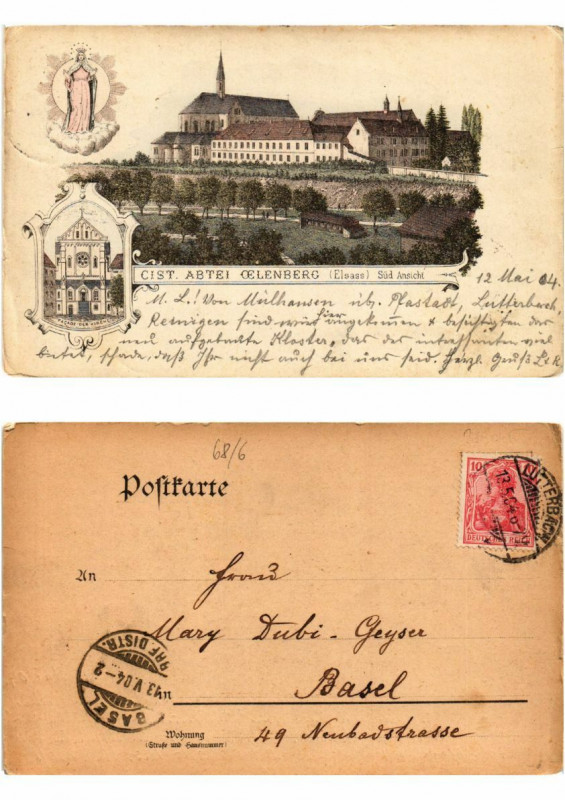 FACADE DER KIRCHE
CIST. ABTEI ŒLENBERG (Elsass) Süd Ansicht
12 Mai 04.
M. L.! Von Mülhausen üb. Pfastadt, Lutterbach,
Reinigen sind wir hier angekom̄en & besichtigten das
neu aufgebaute Kloster, das des interessanten viel
bietet, schade, daß Ihr nicht auch bei uns seid. Herzl. Gruß L & R
68/6
Postkarte
10
DEUTSCHES REICH
LUTTERBACH
13.5.04
An Frau
Mary Dubi-Geyser
BASEL
BRF DISTR.
13 V.04-2
in Basel
Wohnung
(Straße und Hausnummer)
49 Neubadstrasse